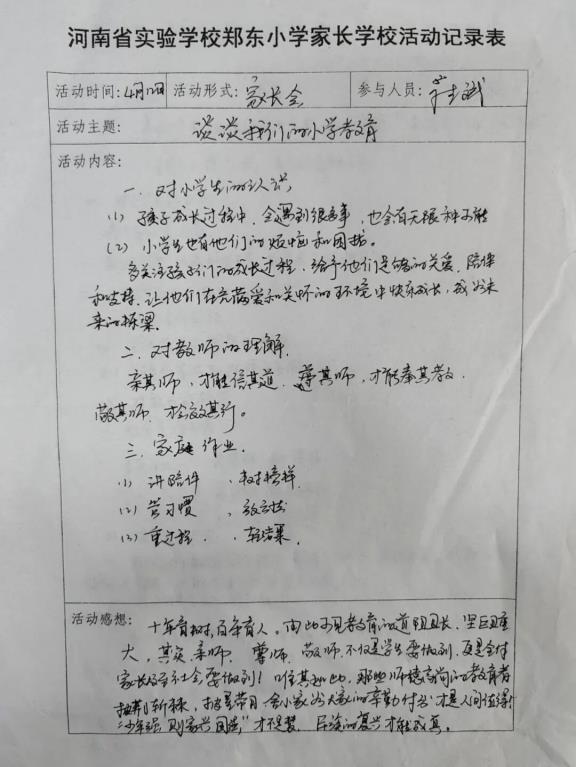 河南省实验学校郑东小学家长学校活动记录表
活动时间: 4月 活动形式: 家长会 参与人员:
活动主题: 谈谈我们的小学教育
活动内容:
一、对小学生的认识
(1) 孩子成长过程中,会遇到很多事,也会有无限种可能
(2) 小学生也有他们的烦恼和困扰。
多关注孩子们的成长过程,给予他们足够的关爱、陪伴
和支持,让他们在充满爱和关怀的环境中快乐成长,成为未
来的栋梁。
二、对教师的理解
亲其师,才能信其道、尊其师,才能奉其教、
敬其师、才会效其行。
三、家庭作业.
(1) 讲陪伴、树榜样
(2) 习惯、
(3) 重过程、轻结果
活动感想: 十年育树,百年育人。由此可见教育的道阻且长,
大,其实亲师、尊师、敬师不仅是学生要做到,更是全体
家长及社会要做到!唯其如此,那些师德高尚的教育者
披荆斩棘,披星带月舍小家为大家的辛勤付出才是人间值得!
“少年强则家兴国强”才不是梦,民族的复兴才能成真。